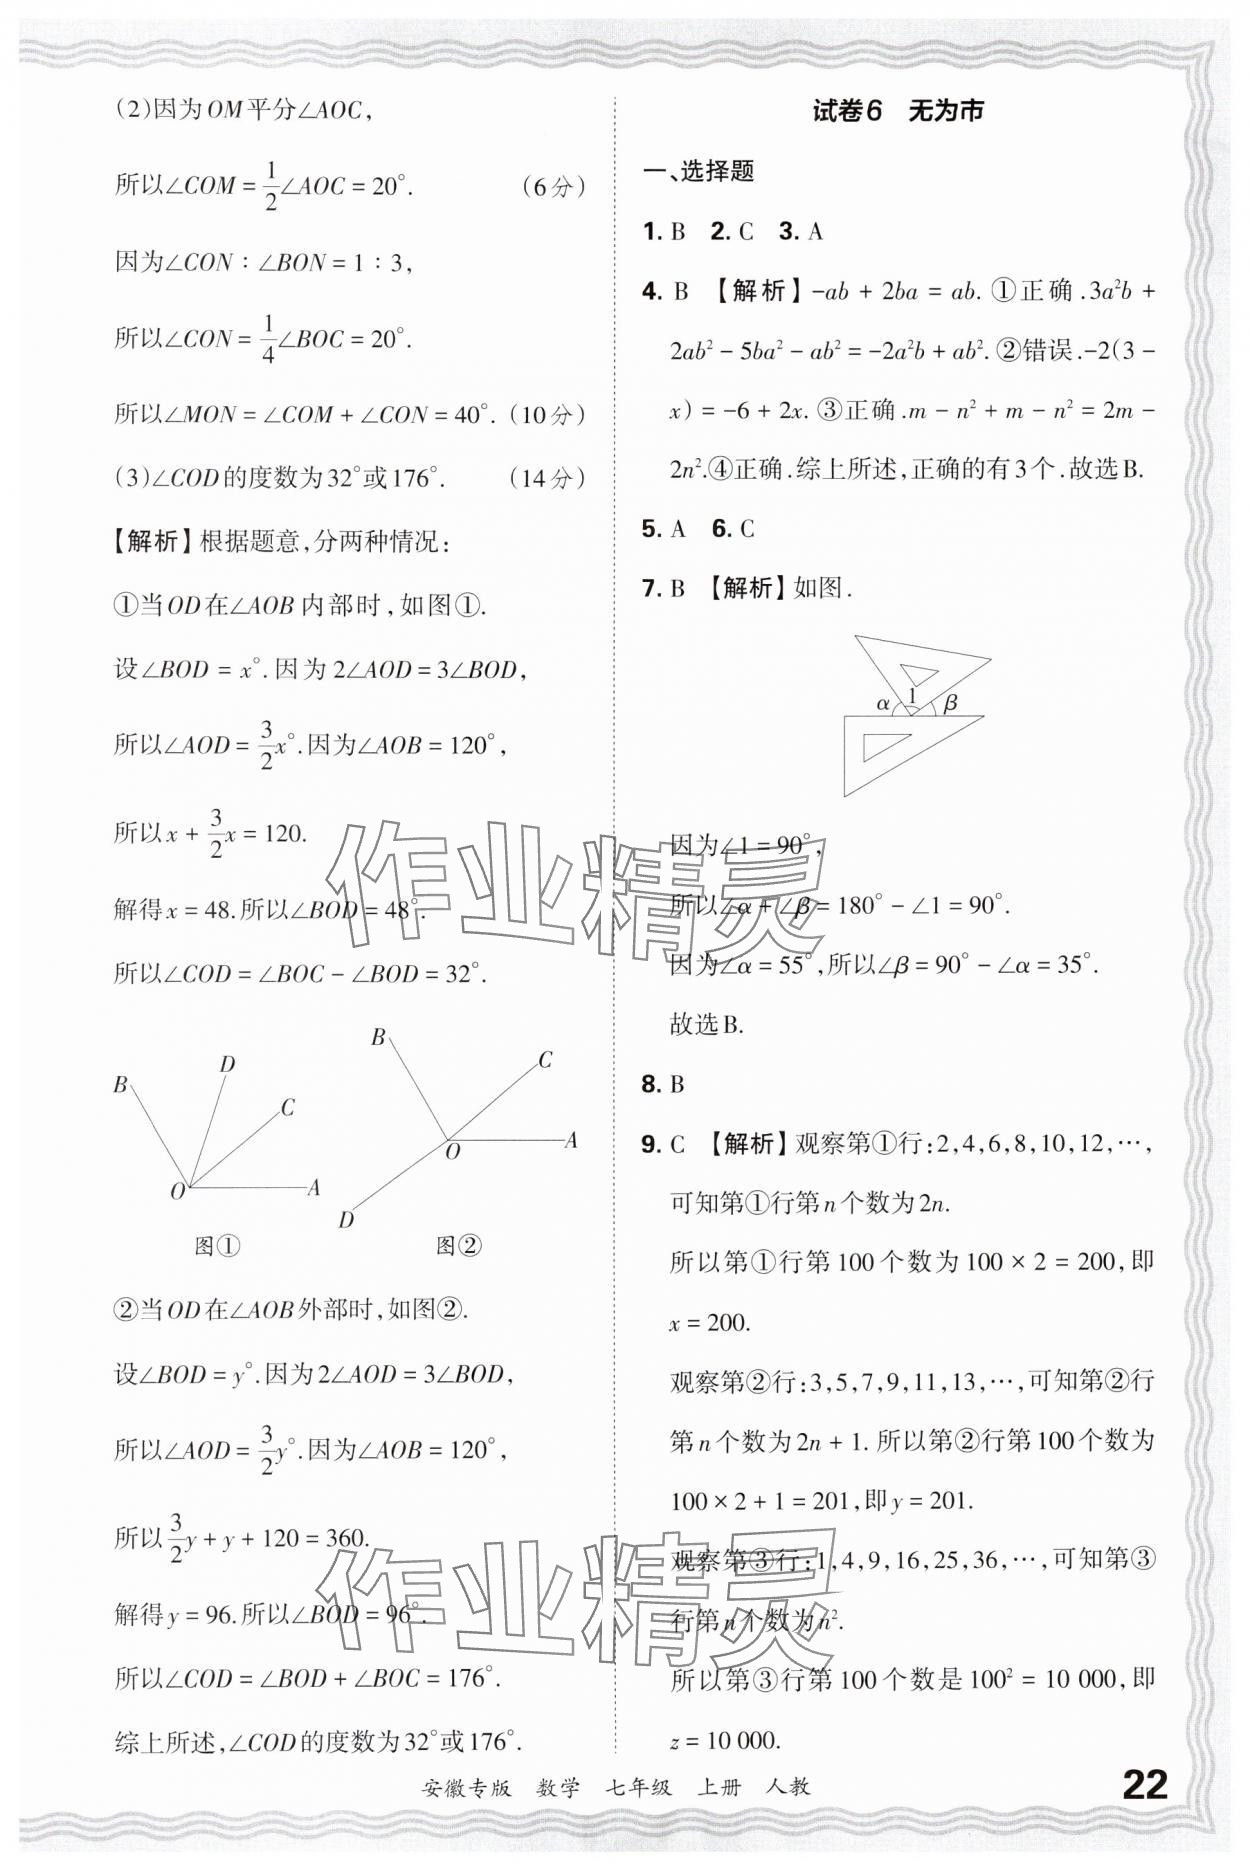 (2)因为OM平分∠AOC,
所以∠COM = 1/2∠AOC = 20°. (6分)
因为∠CON : ∠BON = 1 : 3,
所以∠CON = 1/4∠BOC = 20°.
所以∠MON = ∠COM + ∠CON = 40°. (10分)
(3)∠COD的度数为32°或176°. (14分)
【解析】根据题意,分两种情况:
①当OD在∠AOB内部时,如图①.
设∠BOD = x°.因为2∠AOD = 3∠BOD,
所以∠AOD = 3/2x°.因为∠AOB = 120°,
所以x + 3/2x = 120.
解得x = 48.所以∠BOD = 48°.
所以∠COD = ∠BOC - ∠BOD = 32°.
B D C O A
图①
B C O A D
图②
②当OD在∠AOB外部时,如图②.
设∠BOD = y°.因为2∠AOD = 3∠BOD,
所以∠AOD = 3/2y°.因为∠AOB = 120°,
所以3/2y + y + 120 = 360.
解得y = 96.所以∠BOD = 96°.
所以∠COD = ∠BOD + ∠BOC = 176°.
综上所述,∠COD的度数为32°或176°.
试卷6 无为市
一、选择题
1. B 2. C 3. A
4. B 【解析】-ab + 2ba = ab. ①正确.3a²b +
2ab² - 5ba² - ab² = -2a²b + ab². ②错误.-2(3 -
x) = -6 + 2x. ③正确.m - n² + m - n² = 2m -
2n².④正确.综上所述,正确的有3个.故选B.
5. A 6. C
7. B 【解析】如图.
α 1 β
因为∠1 = 90°,
所以∠α + ∠β = 180° - ∠1 = 90°.
因为∠α = 55°,所以∠β = 90° - ∠α = 35°.
故选B.
8. B
9. C 【解析】观察第①行:2,4,6,8,10,12,…,
可知第①行第n个数为2n.
所以第①行第100个数为100 × 2 = 200,即
x = 200.
观察第②行:3,5,7,9,11,13,…,可知第②行
第n个数为2n + 1.所以第②行第100个数为
100 × 2 + 1 = 201,即y = 201.
观察第③行:1,4,9,16,25,36,…,可知第③
行第n个数为n².
所以第③行第100个数是100² = 10 000,即
z = 10 000.
作业精灵
作业精灵
安徽专版 数学 七年级 上册 人教
22